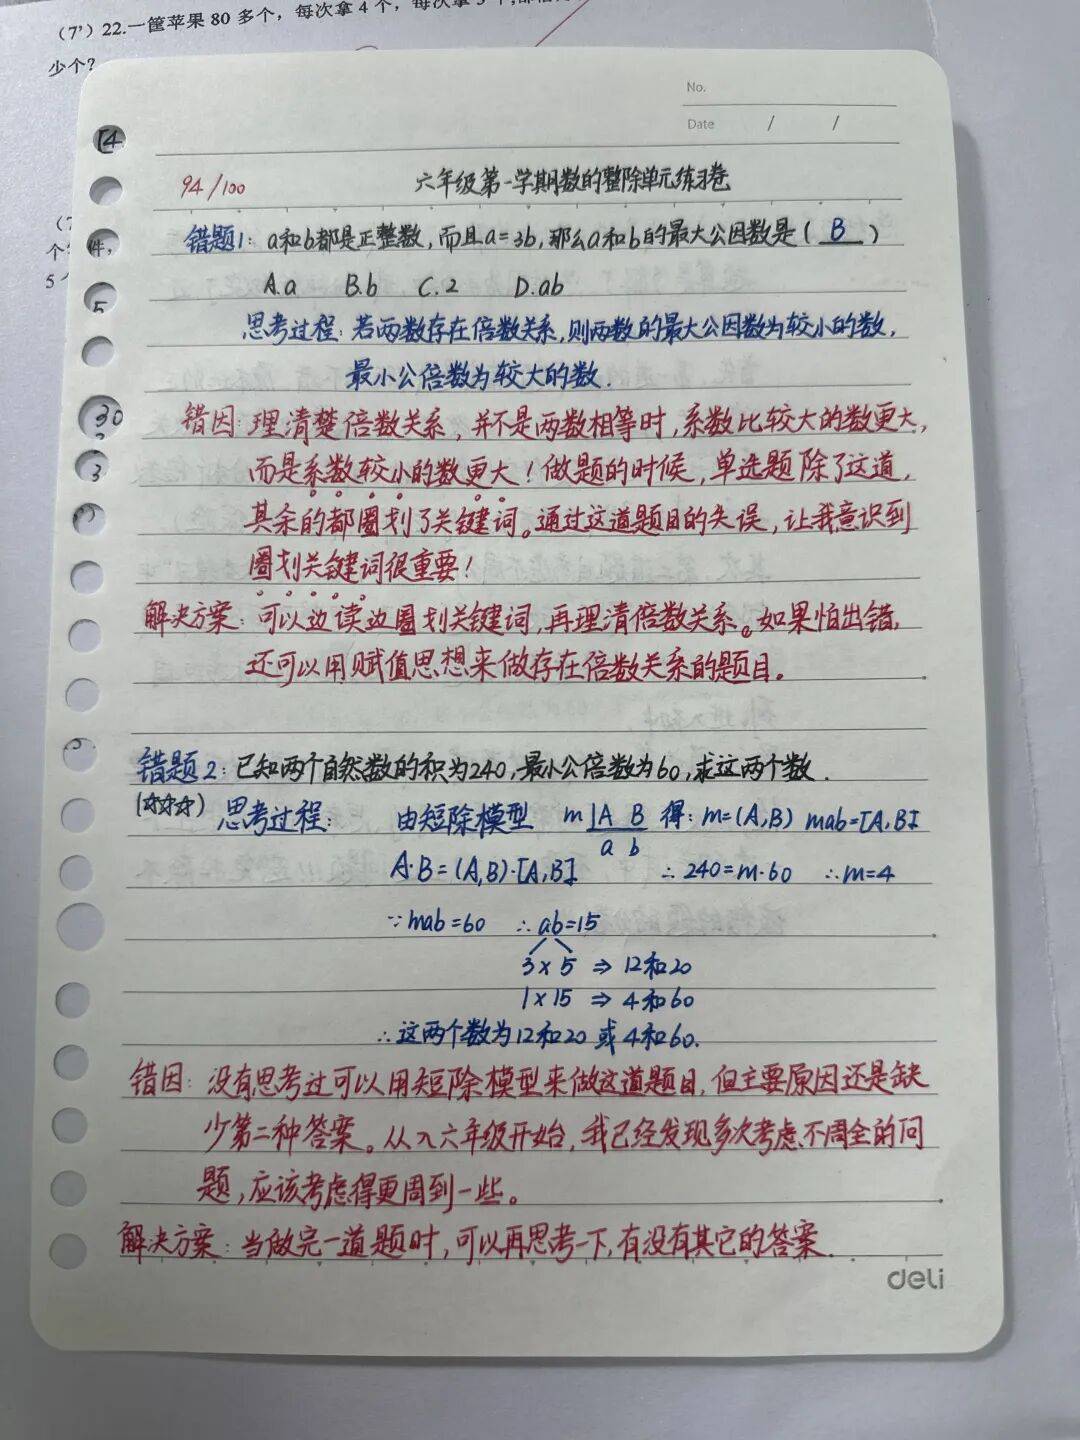 (7') 22.一筐苹果 80 多个，每次拿 4 个，每次拿 3 个,
少个?
No.
Date / /
94/100 六年级第一学期数的整除单元练习卷
错题1: a和b都是正整数,而且a=3b,那么a和b的最大公因数是( B )
A.a B.b C.2 D.ab
思考过程:若两数存在倍数关系,则两数的最大公因数为较小的数,
最小公倍数为较大的数.
错因:理清楚倍数关系,并不是两数相等时,系数比较大的数更大,
而是系数较小的数更大!做题的时候,单选题除了这道,
其余的都圈划了关键词。通过这道题目的失误,让我意识到
圈划关键词很重要!
解决方案:可以边读边圈划关键词,再理清倍数关系。如果怕出错,
还可以用赋值思想来做存在倍数关系的题目。
错题2:已知两个自然数的积为240,最小公倍数为60,求这两个数.
(☆☆☆) 思考过程: 由短除模型 m|A B 得: m=(A,B) mab=[A,B]
a b
A·B=(A,B)·[A,B] ∴240=m·60 ∴m=4
∵mab=60 ∴ab=15
3×5 ⇒ 12和20
1×15 ⇒ 4和60
∴这两个数为12和20或4和60.
错因:没有思考过可以用短除模型来做这道题目,但主要原因还是缺
少第二种答案。从入六年级开始,我已经发现多次考虑不周全的问
题,应该考虑得更周到一些。
解决方案:当做完一道题时,可以再思考一下,有没有其它的答案.
deli